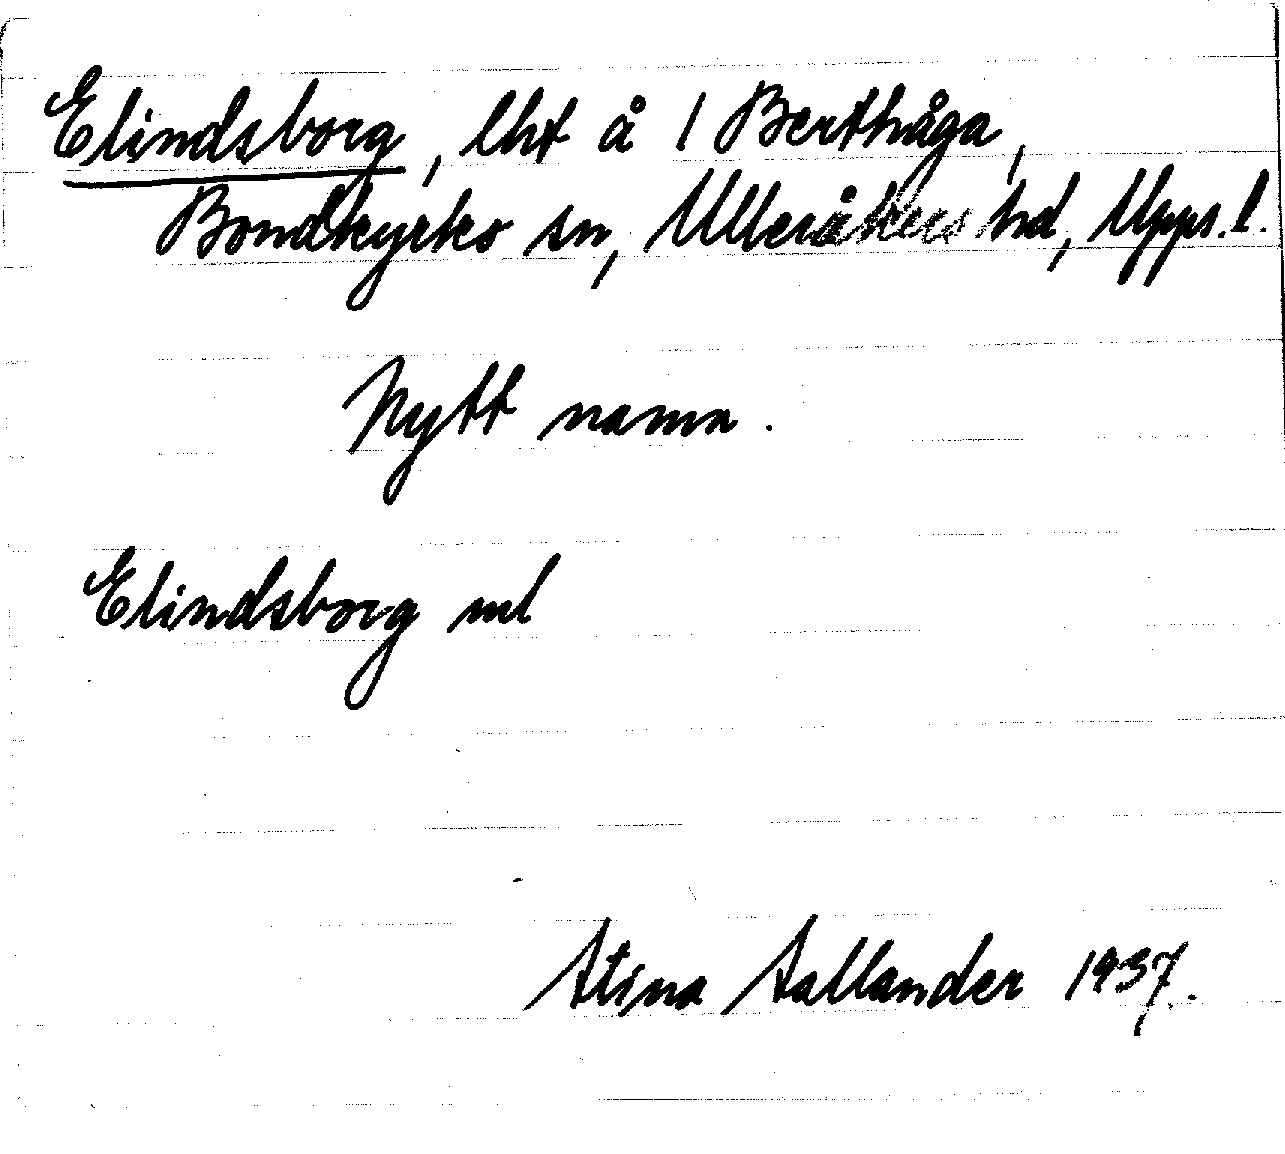 Elindsborg, lht å 1 Berthåga,
Bondkyrko sn, Ulleråkers hd, Upps. l.
Nytt namn.
Elindsborg ml
Stina Sallander 1937.